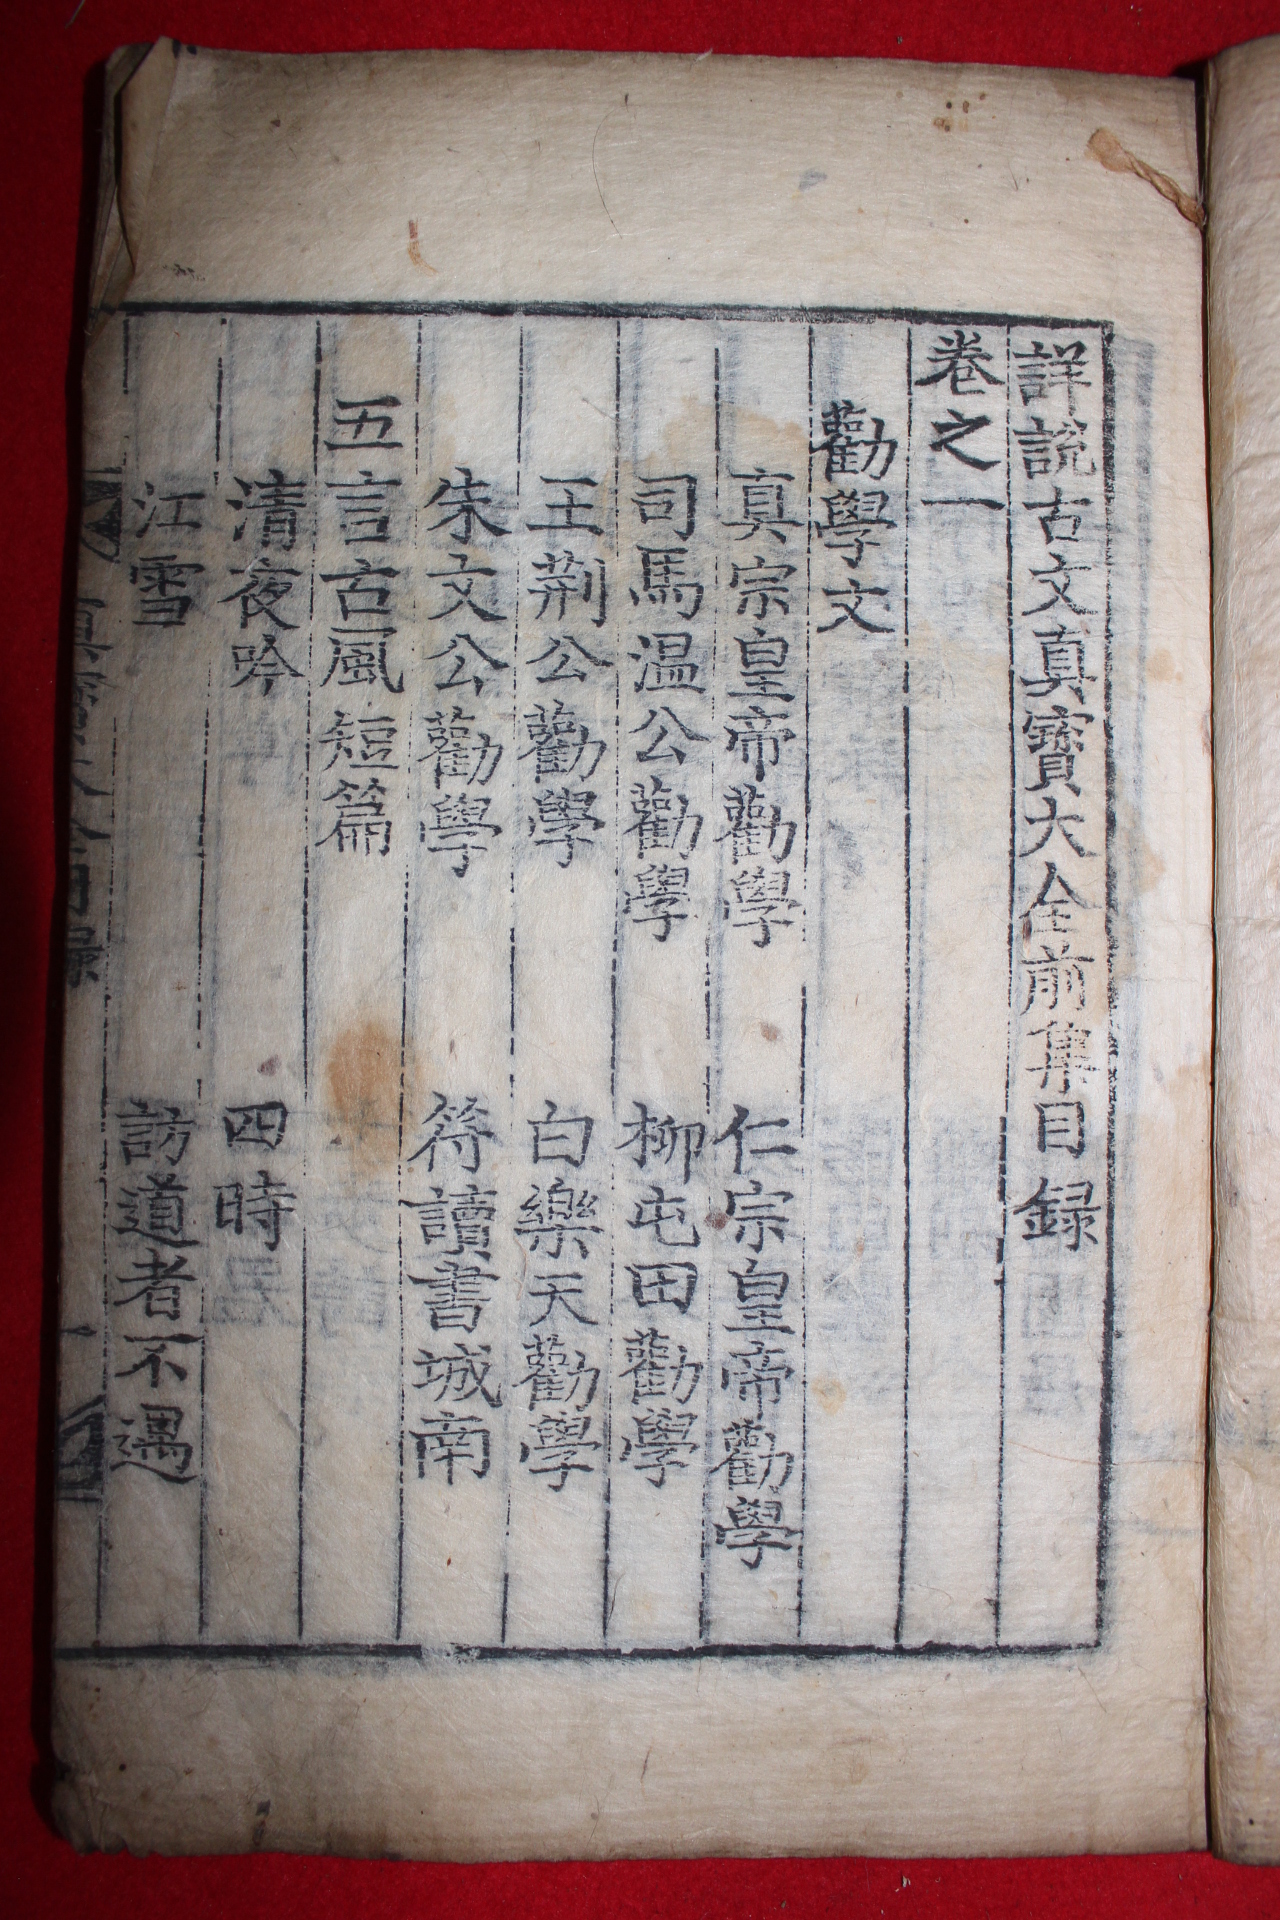 詳說古文真寶大全前集目録
卷之一
勸學文
真宗皇帝勸學 仁宗皇帝勸學
司馬温公勸學 柳屯田勸學
王荆公勸學 白樂天勸學
朱文公勸學 符讀書城南
五言古風短篇
清夜吟 四時
江雪 訪道者不遇
真寶大全目録